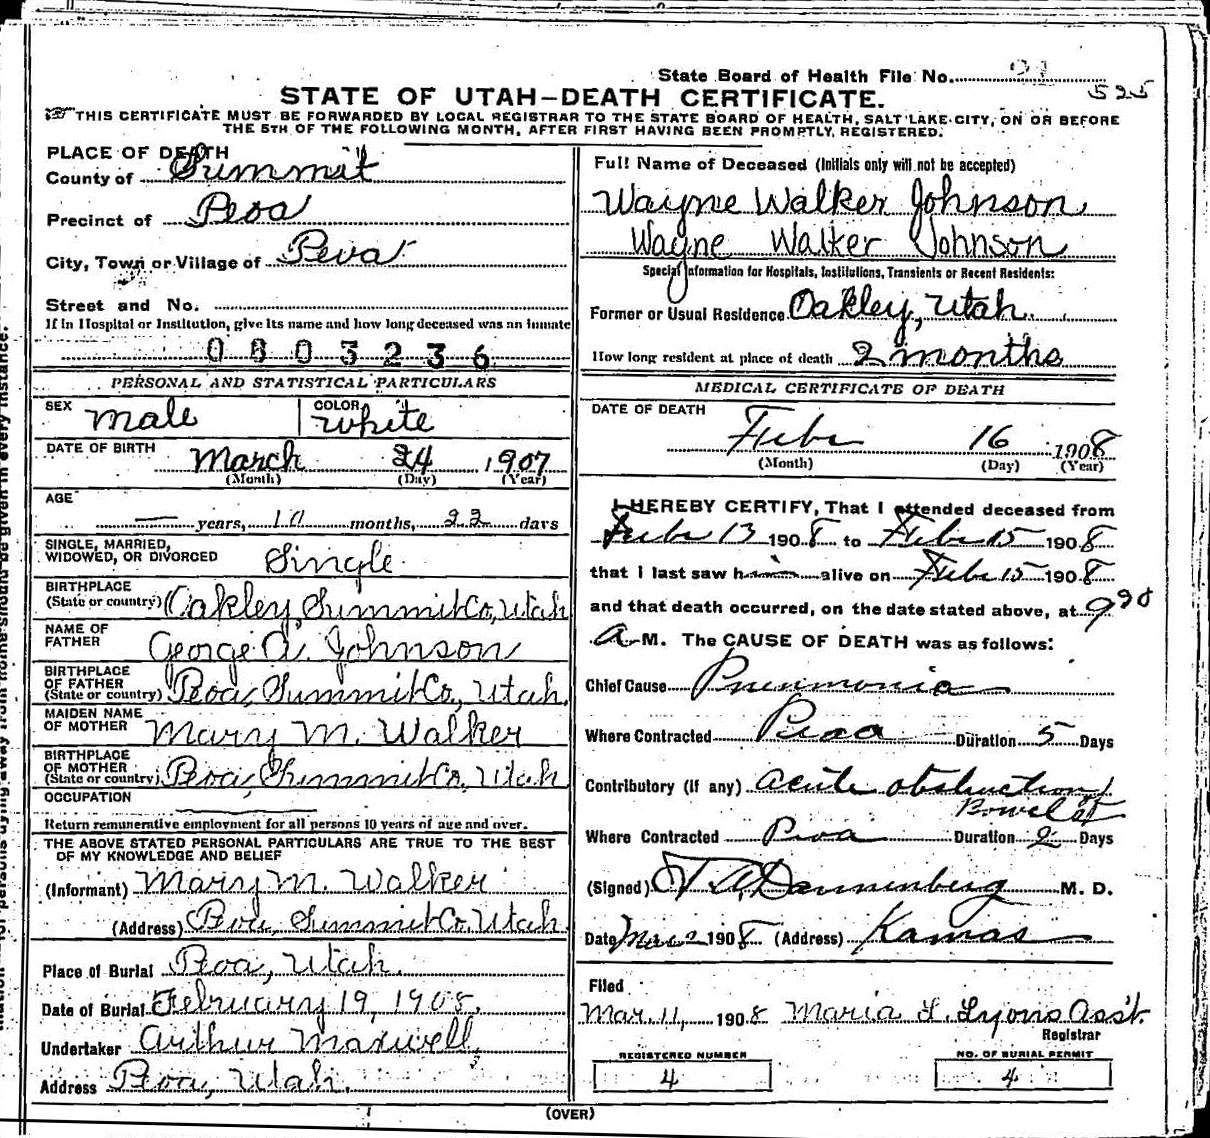 State Board of Health File No. 525
STATE OF UTAH-DEATH CERTIFICATE.
THIS CERTIFICATE MUST BE FORWARDED BY LOCAL REGISTRAR TO THE STATE BOARD OF HEALTH, SALT LAKE CITY, ON OR BEFORE
THE 5TH OF THE FOLLOWING MONTH, AFTER FIRST HAVING BEEN PROMPTLY REGISTERED.
PLACE OF DEATH
County of Summit
Precinct of Peoa
City, Town or Village of Peoa
Street and No.
If in Hospital or Institution, give its name and how long deceased was an inmate
0803236
PERSONAL AND STATISTICAL PARTICULARS
SEX Male COLOR White
DATE OF BIRTH March 24 1907
(Month) (Day) (Year)
AGE
— years, 10 months, 22 days
SINGLE, MARRIED,
WIDOWED, OR DIVORCED Single
BIRTHPLACE
(State or country) Oakley, Summit Co, Utah
NAME OF
FATHER George A. Johnson
BIRTHPLACE
OF FATHER
(State or country) Peoa, Summit Co, Utah.
MAIDEN NAME
OF MOTHER Mary M. Walker
BIRTHPLACE
OF MOTHER
(State or country) Peoa, Summit Co, Utah
OCCUPATION
Return remunerative employment for all persons 10 years of age and over.
THE ABOVE STATED PERSONAL PARTICULARS ARE TRUE TO THE BEST
OF MY KNOWLEDGE AND BELIEF
(Informant) Mary M. Walker
(Address) Peoa, Summit Co. Utah.
Place of Burial Peoa, Utah.
Date of Burial February 19, 1908.
Undertaker Arthur Maxwell.
Address Peoa, Utah.
Full Name of Deceased (Initials only will not be accepted)
Wayne Walker Johnson
Wayne Walker Johnson
Special Information for Hospitals, Institutions, Transients or Recent Residents:
Former or Usual Residence Oakley, Utah.
How long resident at place of death 2 months
MEDICAL CERTIFICATE OF DEATH
DATE OF DEATH
Feby 16 1908
(Month) (Day) (Year)
I HEREBY CERTIFY, That I attended deceased from
Feby 13 1908 to Feby 15 1908
that I last saw him alive on Feby 15 1908
and that death occurred, on the date stated above, at 9
A M. The CAUSE OF DEATH was as follows:
Chief Cause Pneumonia
Where Contracted Peoa Duration 5 Days
Contributory (if any) acute obstruction
Bowels
Where Contracted Peoa Duration 2 Days
(Signed) Dannenberg M. D.
Date Mar 2 1908 (Address) Kamas
Filed
Mar. 11, 1908 Maria L. Lyons Asst.
Registrar
REGISTERED NUMBER
4
NO. OF BURIAL PERMIT
4
(OVER)